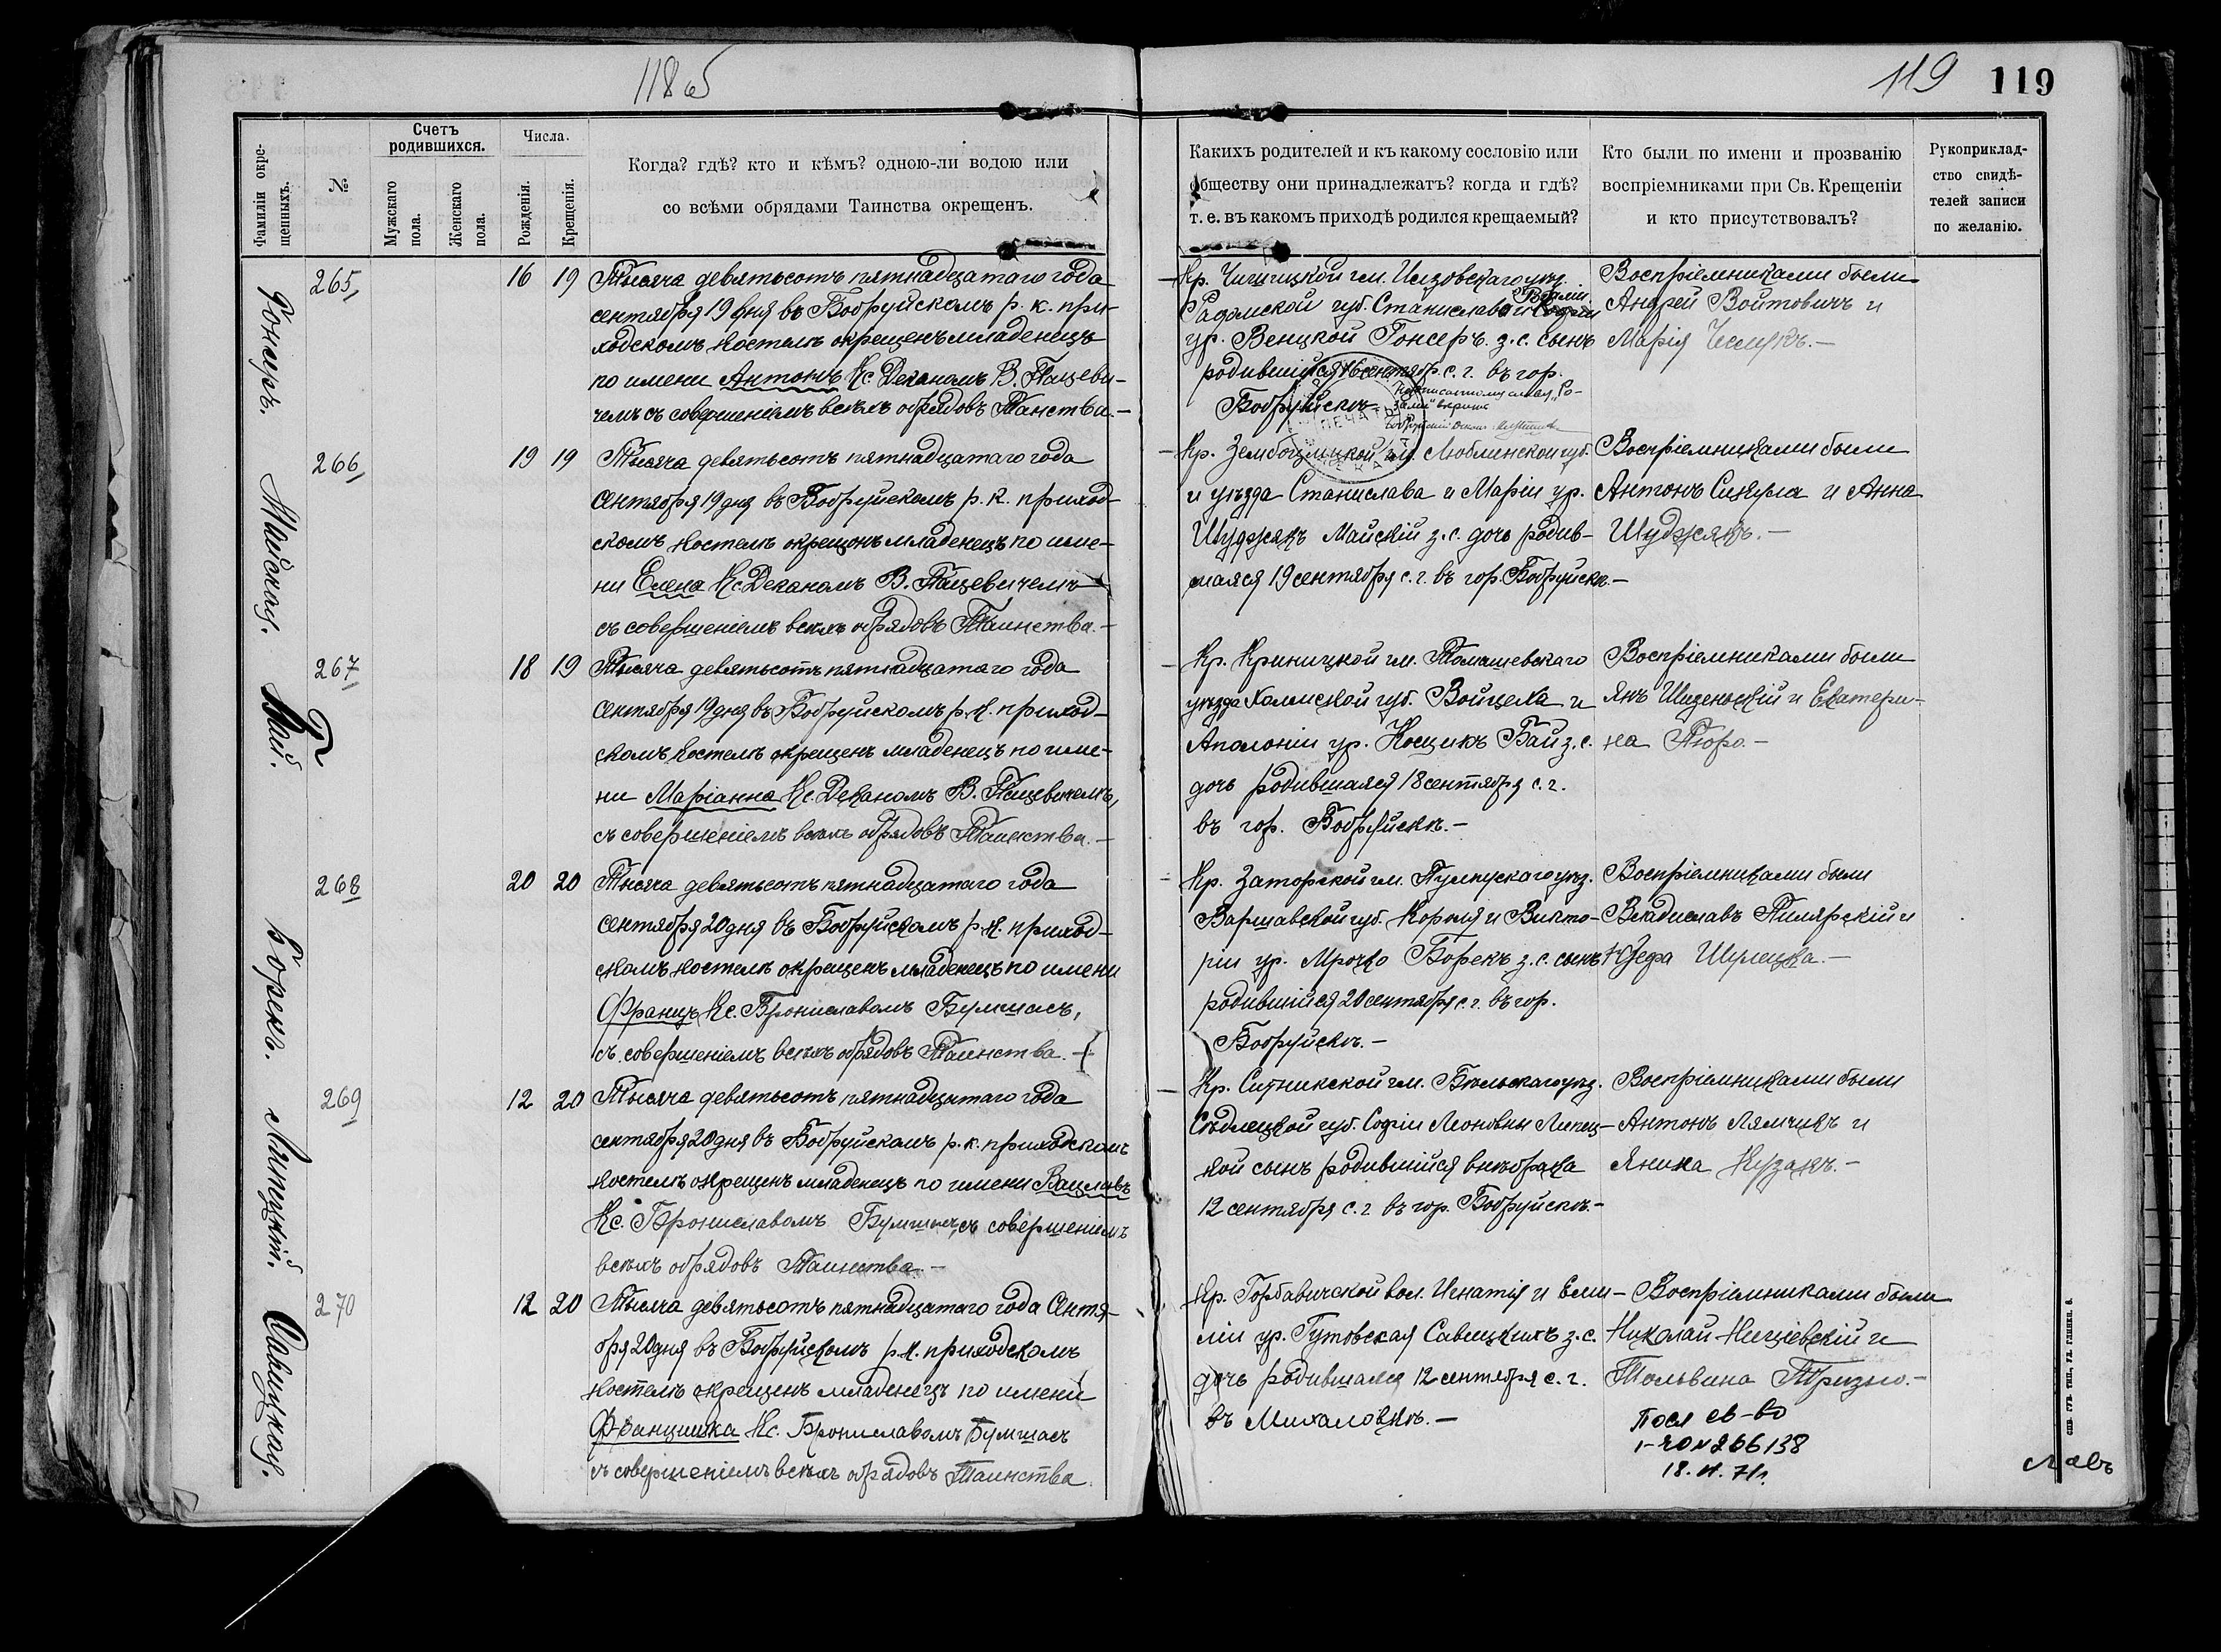 118 об
119
119
Фамиліи окрещенныхъ.
№
Счетъ родившихся.
Мужскаго пола.
Женскаго пола.
Числа.
Рожденія.
Крещенія.
Когда? гдѣ? кто и кѣмъ? одною-ли водою или
со всѣми обрядами Таинства окрещенъ.
Какихъ родителей и къ какому сословію или
обществу они принадлежатъ? когда и гдѣ?
т. е. въ какомъ приходѣ родился крещаемый?
Кто были по имени и прозванію
воспріемниками при Св. Крещеніи
и кто присутствовалъ?
Рукоприклад-
ство свидѣ-
телей записи
по желанію.
Гонсеръ.
265
16 19
Тысяча девятьсотъ пятнадцатаго года
сентября 19 дня въ Бобруйскомъ р. к. при-
ходскомъ костелѣ окрещенъ младенецъ
по имени Антонъ Кс. Деканомъ В. Пацеви-
чемъ съ совершеніемъ всѣхъ обрядовъ Таинства.-
Кр. гм. Илзовскаго уѣз.
Радомской губ. Станислава и Розаліи
ур. Веицкой Гонсеръ. з. с. сынъ
родившійся 16 сентябр. с. г. въ гор.
Бобруйскѣ
Воспріемниками были
Андрей Войтовичъ и
Марія
Майская.
266
19 19
Тысяча девятьсотъ пятнадцатаго года
сентября 19 дня въ Бобруйскомъ р. к. приход-
скомъ костелѣ окрещенъ младенецъ по име-
ни Елена Кс. Деканомъ В. Пацевичемъ
съ совершеніемъ всѣхъ обрядовъ Таинства.-
Кр. гм. Люблинской губ.
и уѣзда Станислава и Маріи ур.
Шуджякъ Майскій з. с. дочь родив-
шаяся 19 сентября с. г. въ гор. Бобруйскѣ.-
Воспріемниками были
Антонъ Сикула и Анна
Шуджякъ.-
Бай.
267
18 19
Тысяча девятьсотъ пятнадцатаго года
сентября 19 дня въ Бобруйскомъ р. к. приход-
скомъ костелѣ окрещенъ младенецъ по име-
ни Маріанна Кс. Деканомъ В. Пацевичемъ,
съ совершеніемъ всѣхъ обрядовъ Таинства.-
Кр. Криницкой гм. Томашевскаго
уѣзда Холмской губ. Войцеха и
Аполоніи ур. Кощикъ Бай з. с.
дочь родившаяся 18 сентября с. г.
въ гор. Бобруйскѣ.-
Воспріемниками были
Янъ и Екатери-
на Пюро.-
Борекъ.
268
20 20
Тысяча девятьсотъ пятнадцатаго года
сентября 20 дня въ Бобруйскомъ р. к. приход-
скомъ костелѣ окрещенъ младенецъ по имени
Францъ Кс. Брониславомъ Бумшасъ,
съ совершеніемъ всѣхъ обрядовъ Таинства.-
Кр. Заторской гм. Пултускаго уѣз.
Варшавской губ. Короля и Викто-
ріи ур. Мрочко Борекъ з. с. сынъ
родившійся 20 сентября с. г. въ гор.
Бобруйскѣ.-
Воспріемниками были
Владиславъ Пилярскій и
Юзефа Шулецка.-
Липецкій.
269
12 20
Тысяча девятьсотъ пятнадцатаго года
сентября 20 дня въ Бобруйскомъ р. к. приходскомъ
костелѣ окрещенъ младенецъ по имени Вацлавъ
Кс. Брониславомъ Бумшасъ, съ совершеніемъ
всѣхъ обрядовъ Таинства.-
Кр. Ситникской гм. Бѣльскаго уѣз.
Сѣдлецкой губ. Софіи Леоновны Липец-
кой сынъ родившійся внѣ брака
12 сентября с. г. въ гор. Бобруйскѣ.-
Воспріемниками были
Антонъ Лямчикъ и
Янина Кузакъ.-
Савицкая.
270
12 20
Тысяча девятьсотъ пятнадцатаго года Сентя-
бря 20 дня въ Бобруйскомъ р. к. приходскомъ
костелѣ окрещенъ младенецъ по имени
Францишка Кс. Брониславомъ Бумшасъ
съ совершеніемъ всѣхъ обрядовъ Таинства
Кр. Горбавичской вол. Игнатія и Еми-
ліи ур. Гутовская Савицкихъ з. с.
дочь родившаяся 12 сентября с. г.
въ Михаловкѣ.-
Воспріемниками были
Николай и
Тольвина Тризно.-
Посл св-во
№ 266138